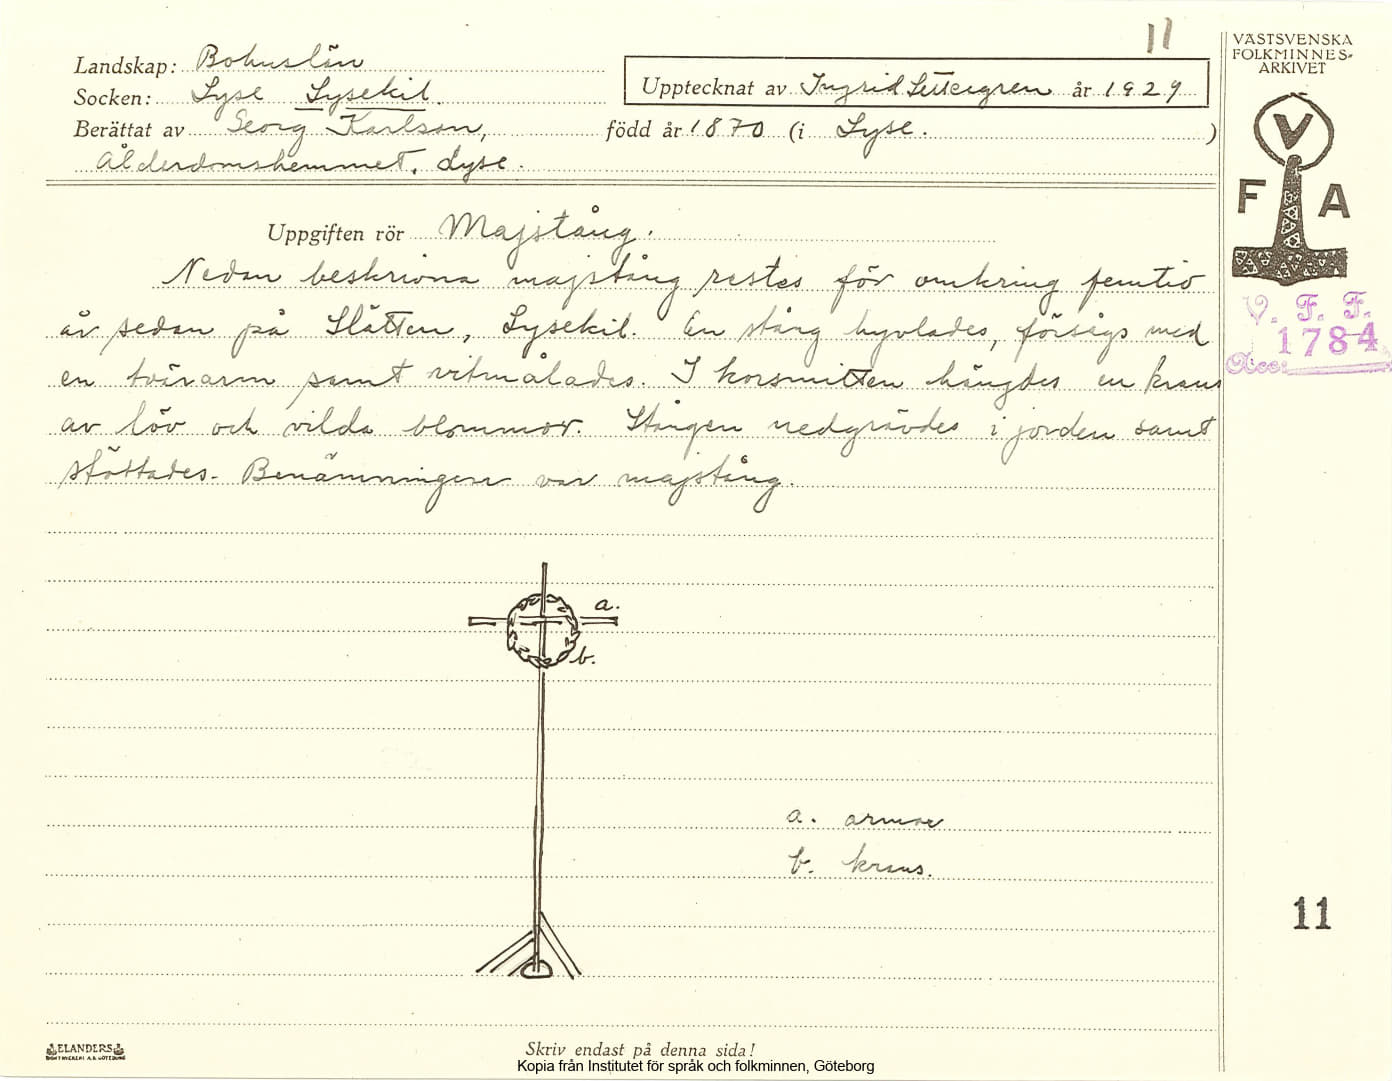 11
VÄSTSVENSKA
FOLKMINNES-
ARKIVET
Landskap: Bohuslän
Socken: Lyse Lysekil.
Upptecknat av Ingrid Settergren år 1929
Berättat av Georg Karlson, född år 1870 (i Lyse. )
Ålderdomshemmet, Lyse.
V
F A
Uppgiften rör Majstång.
Nedan beskrivna majstång restes för omkring femtio
år sedan på Slätten, Lysekil. En stång hyvlades, försågs med
en tvärarm samt vitmålades. I korsmitten hängdes en krans
av löv och vilda blommor. Stången nedgrävdes i jorden samt
stöttades. Benämningen var majstång.
V. F. F.
1784
Acc:
a.
b.
a. armar
b. krans.
11
ELANDERS
BOKTRYCKERI A.B. GÖTEBORG
Skriv endast på denna sida!
Kopia från Institutet för språk och folkminnen, Göteborg